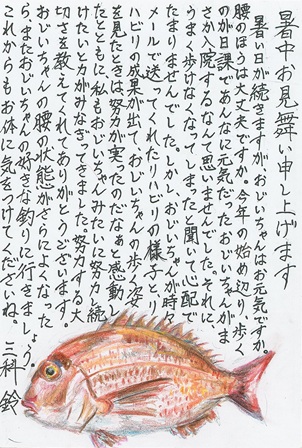 暑中お見舞い申し上げます
暑い日が続きますがおじいちゃんはお元気ですか。
腰のほうは大丈夫ですか。今年の始め辺り、歩く
のが日課であんなに元気だったおじいちゃんがま
さか入院するなんて思いませんでした。それに
うまく歩けなくなってしまったと聞いて心配で
たまりませんでした。しかし、おじいちゃんが時々
メールで送ってくれたリハビリの様子と、リ
ハビリの成果が出て、おじいちゃんの歩く姿
を見たときは、努力が実ったのだなぁと感動し
たとともに、私もおじいちゃんみたいに努力し続
けたいと力がみなぎってきました。努力する大
切さを教えてくれてありがとうございます。
おじいちゃんの腰の状態がさらによくなった
ら、またおじいちゃんの好きな釣りに行きましょう。
これからもお体に気をつけてくださいね。
三科 鈴